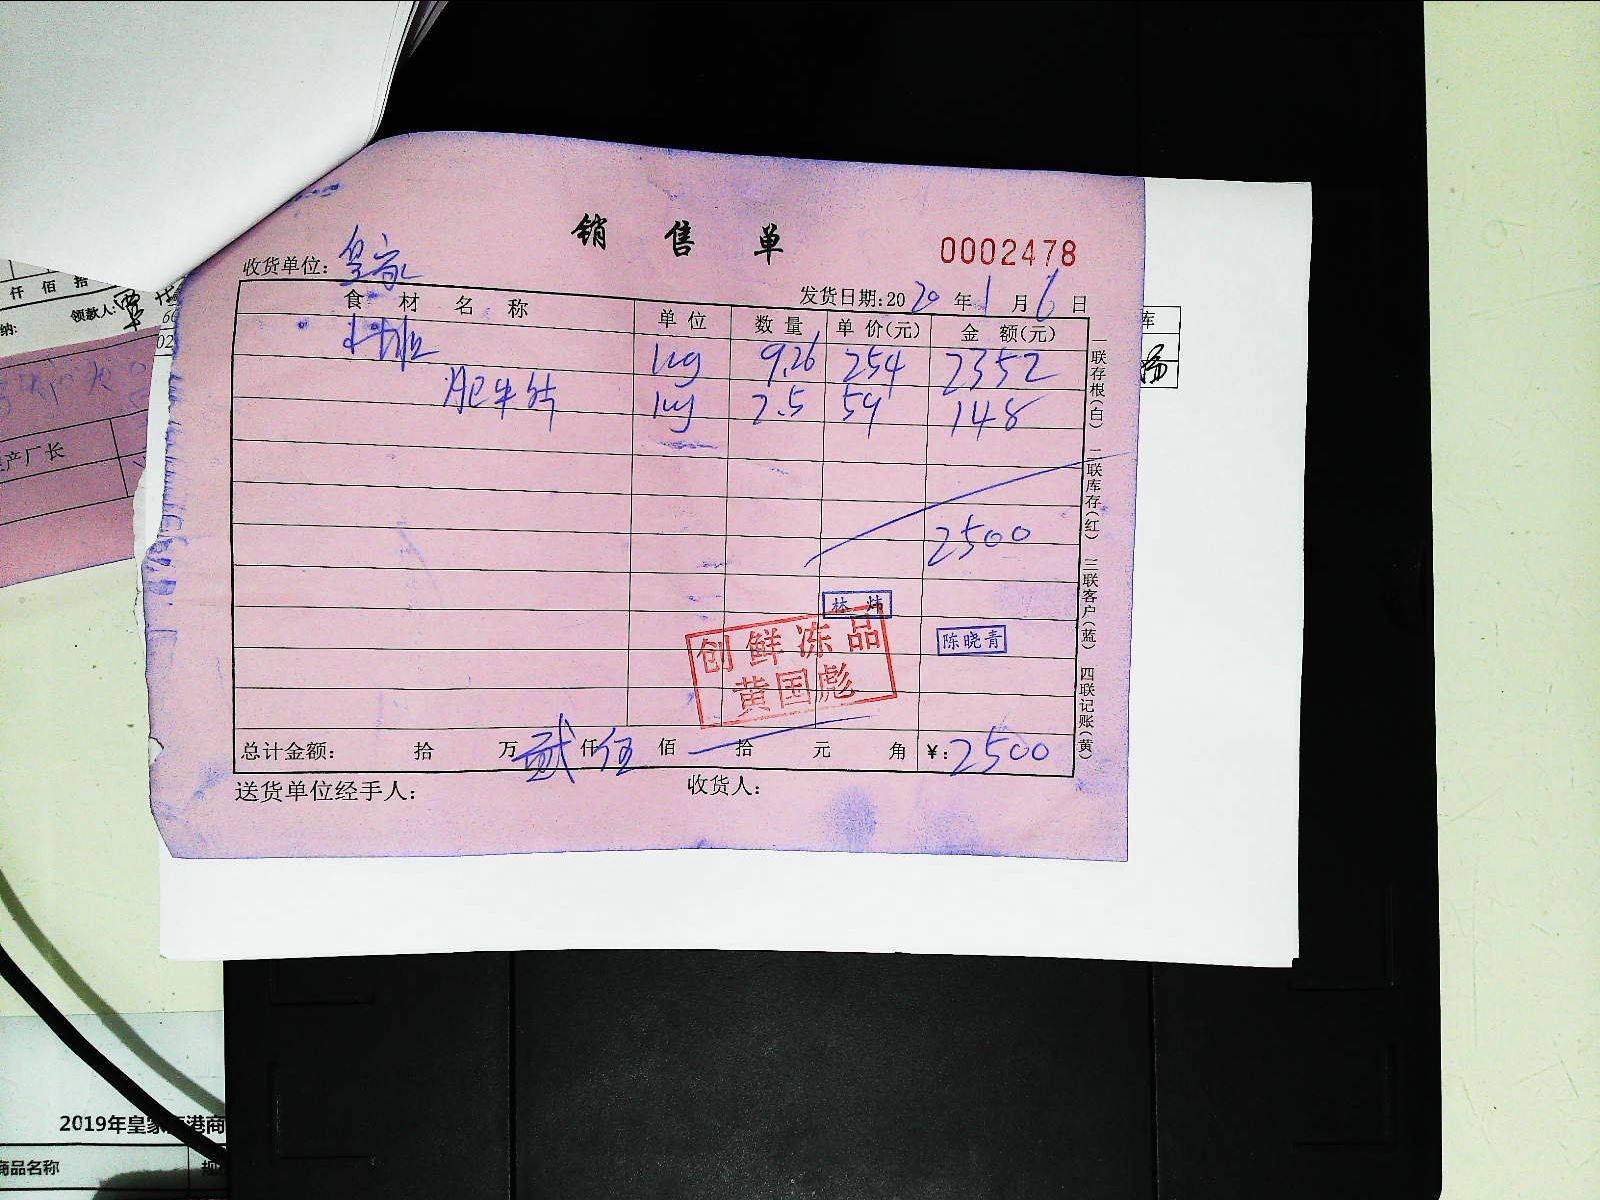 销售单
0002478
收货单位：皇家
发货日期：2020年1月6日
食材名称 单位 数量 单价（元） 金额（元）
kg 9.26 254 2352
肥牛片 kg 2.5 59 148
2500
林炜
陈晓青
创鲜冻品
黄国彪
总计金额： 拾 万 贰仟 伍佰 拾 元 角 ¥：2500
送货单位经手人： 收货人：
一联存根（白） 二联库存（红） 三联客户（蓝） 四联记账（黄）
仟 佰 拾
纳： 领款人：
产厂长
库
2019年皇家
港商
商品名称